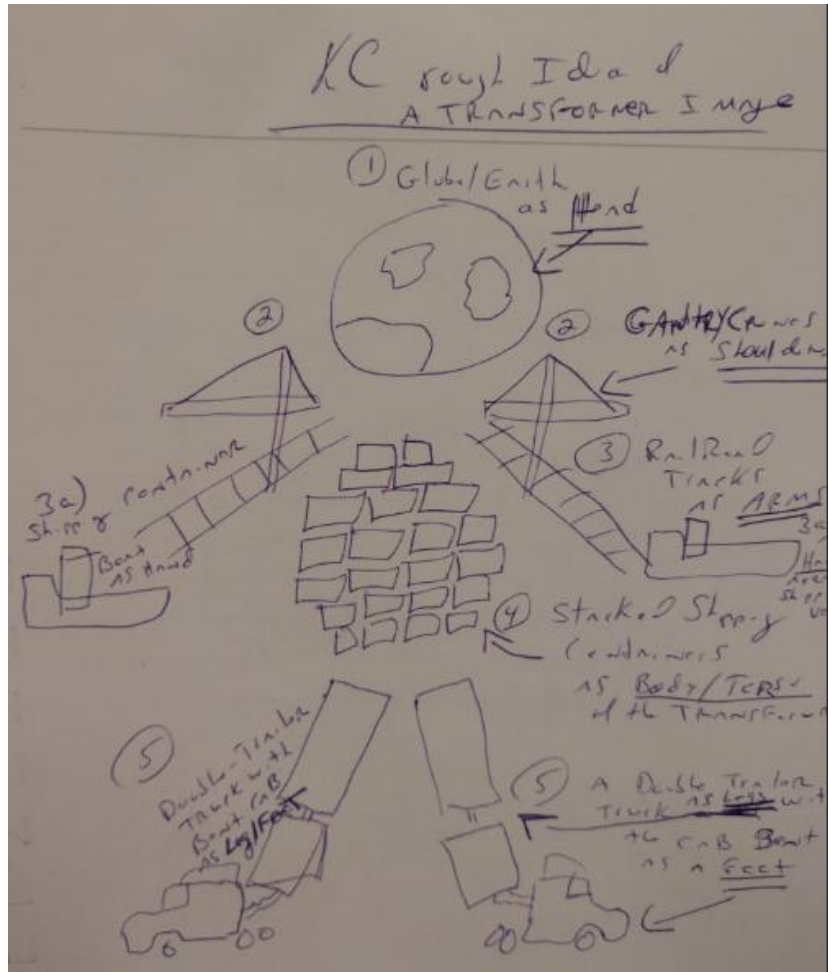 KC rough Idea of
A TRANSFORMER Image
① Globe/Earth
as Head
②
②
GANTRY Cranes
as Shoulders
③ RailRoad
Tracks
as ARMS
3a)
Shipping container
Boat
as Hand
3a
④ Stacked Shipping
Containers
as Body/Torso
of the TRANSFormer
⑤
Double-Trailer
Truck with
Bent Cab
as Leg/Feet
⑤ A Double Trailer
Truck as Legs with
the Cab Bent
as a Feet